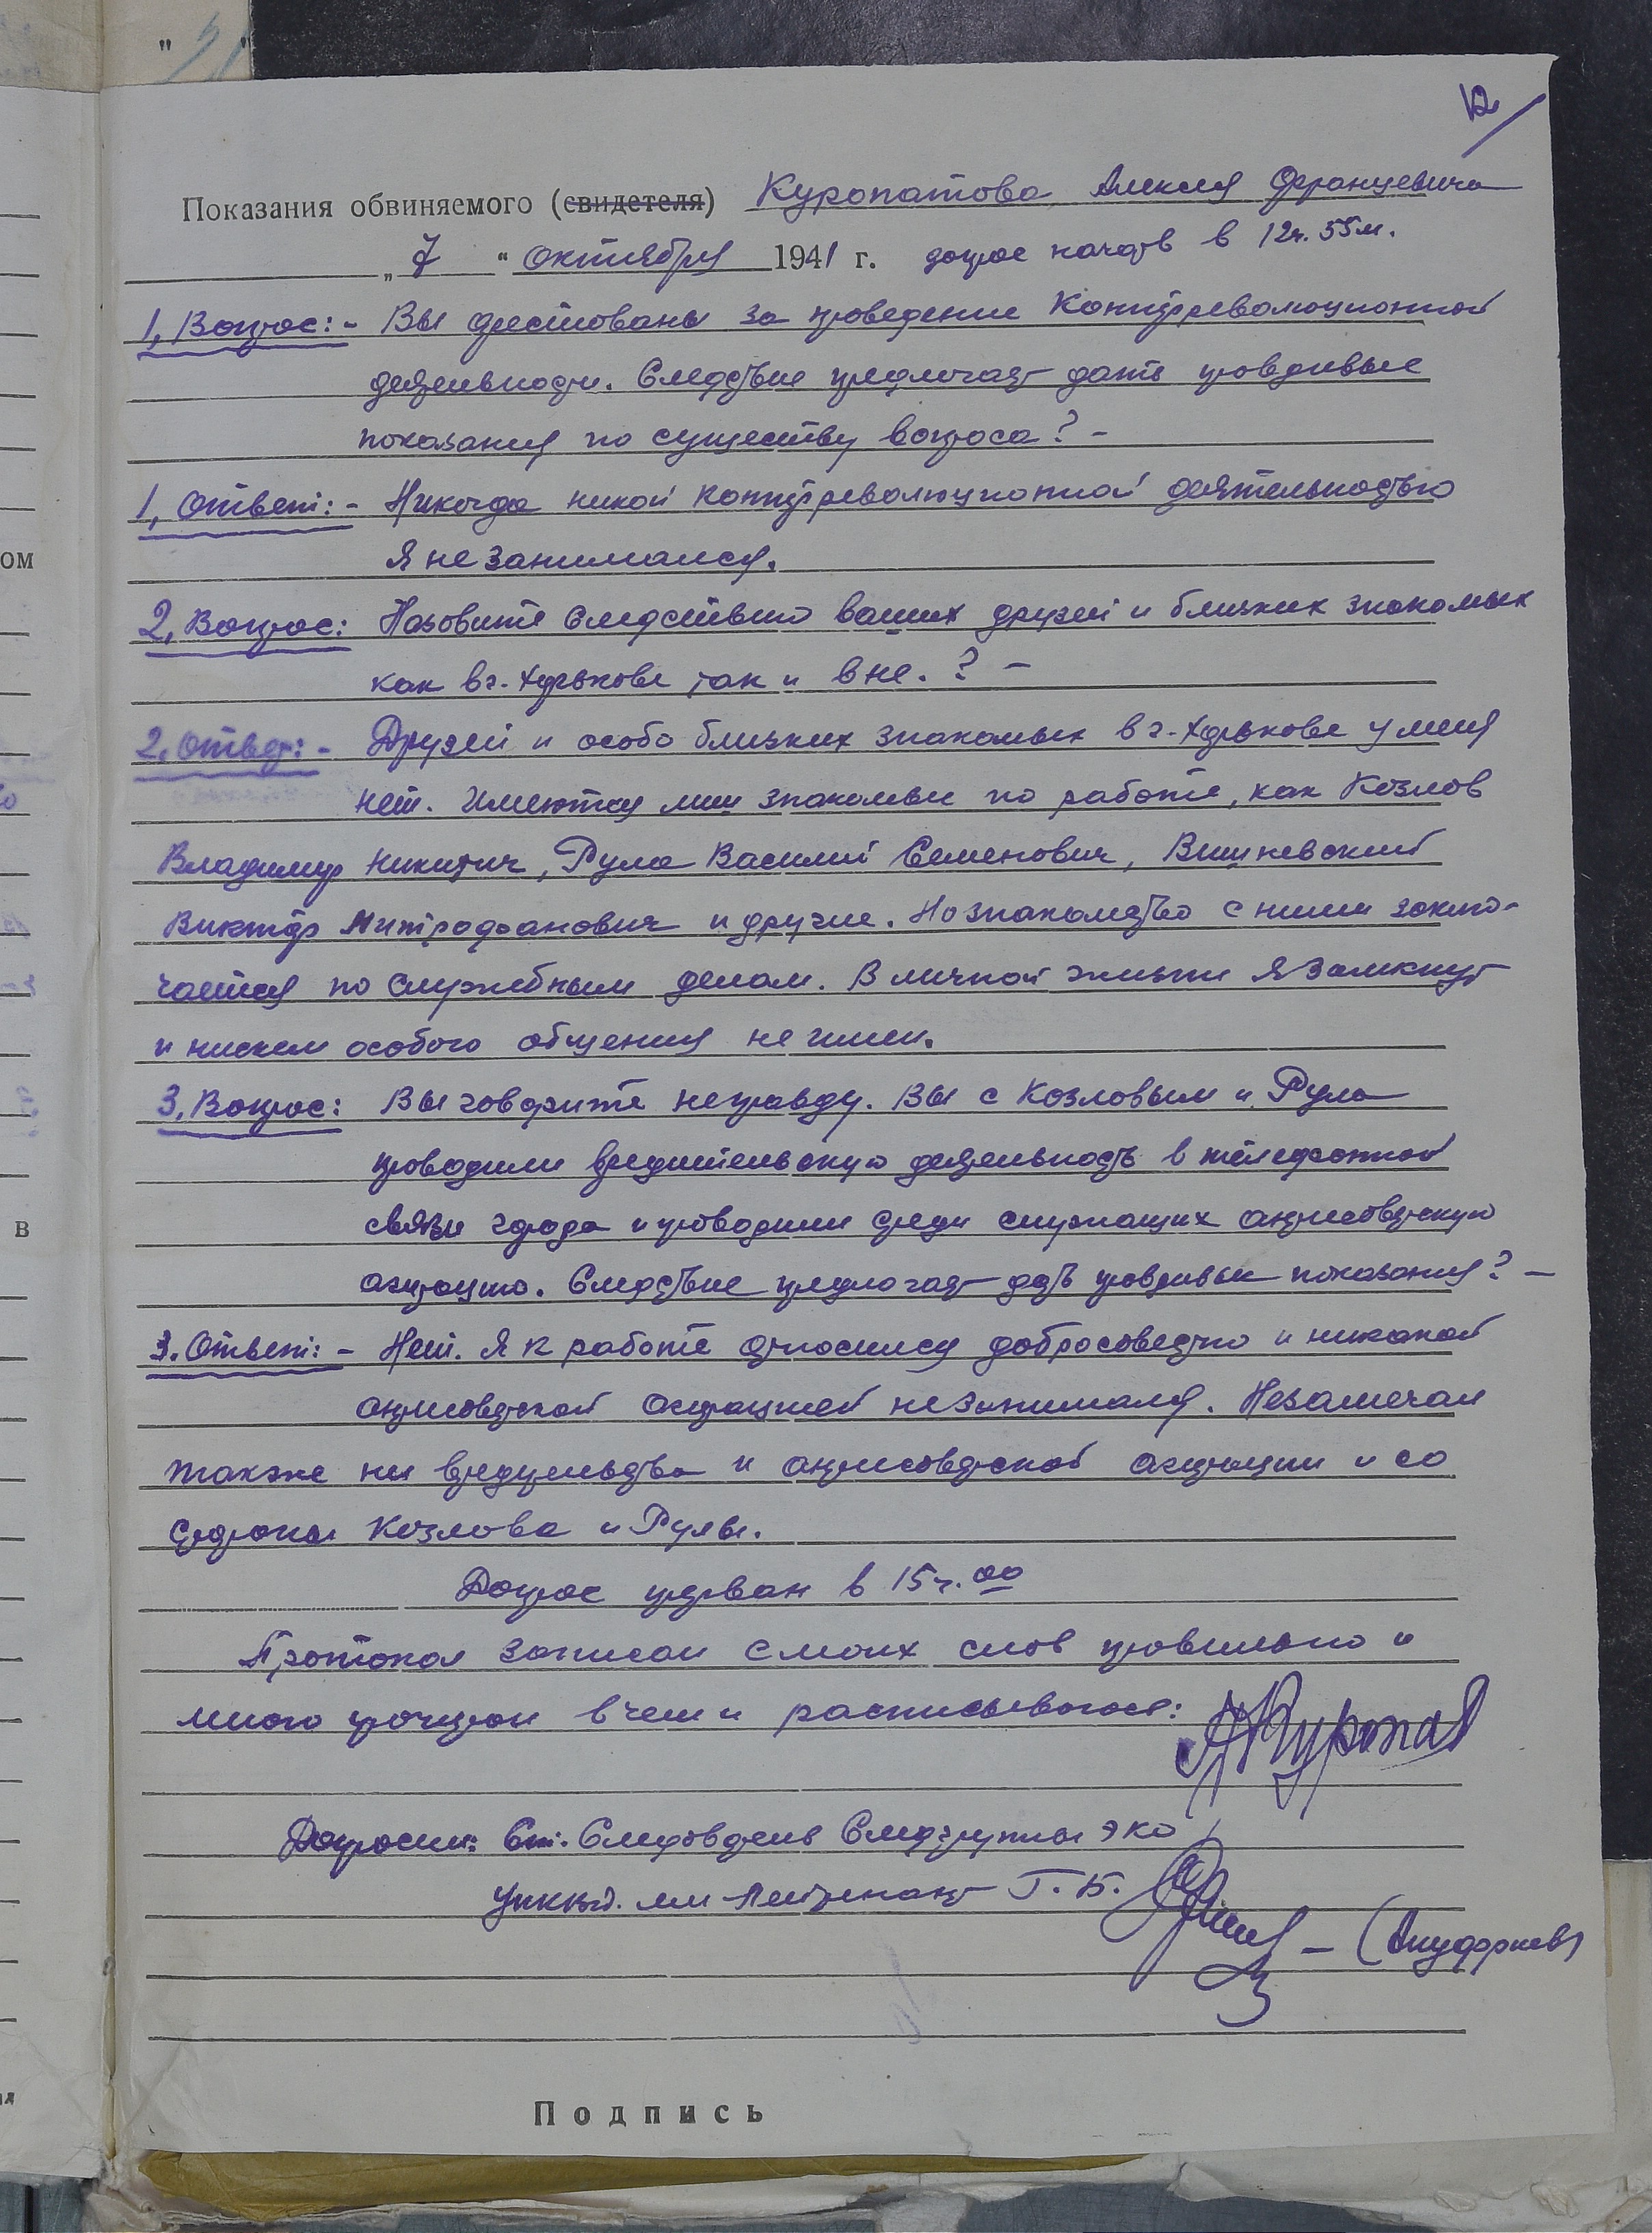 12
Показания обвиняемого (свидетеля) Куропатова Алексея Францевича
„ 7 " октября 1941 г. допрос начат в 12ч. 55м.
1, Вопрос: - Вы арестованы за проведение контрреволюционной
деятельности. Следствие предлогает дать провдивые
показания по существу вопроса? -
1, Ответ: - Никогда никой контрреволюционной деятельностью
я не занимался.
2, Вопрос: Назовите следствию ваших друзей и близких знакомых
как в г. Харькове так и вне. ? -
2. Ответ: - Друзей и особо близких знакомых в г. Харькове у меня
нет. Имеются лиш знакомые по работе, как Козлов
Владимир Никитич, Рула Василий Семенович, Вишневский
Виктор Митрофанович и другие. Но знакомство с ними заклю-
чается по служебным делам. В личной жизни я замкнут
и нискем особого общения не имел.
3, Вопрос: Вы говорите неправду. Вы с Козловым и Рула
проводили вредительскую деятельность в телефонной
связи города и проводили среди служащих антисоветскую
агитацию. Следствие предлогает дать провдивые показания? -
3. Ответ: - Нет. Я к работе относился добросовестно и никакой
антисоветской агитацией не занимался. Незамечал
также ни вредительства и антисоветской агитации и со
стороны Козлова и Рулы.
Допрос прерван в 15ч. 00
Протокол записан с моих слов провильно и
мною прочитан в чем и расписываюсь: АКуропат
Допросил: Ст. Следователь Следгруппы ЭКО
УНКВД. мл Лейтенант Г. Б. - (Ануфриев)
Подпись
ом
в